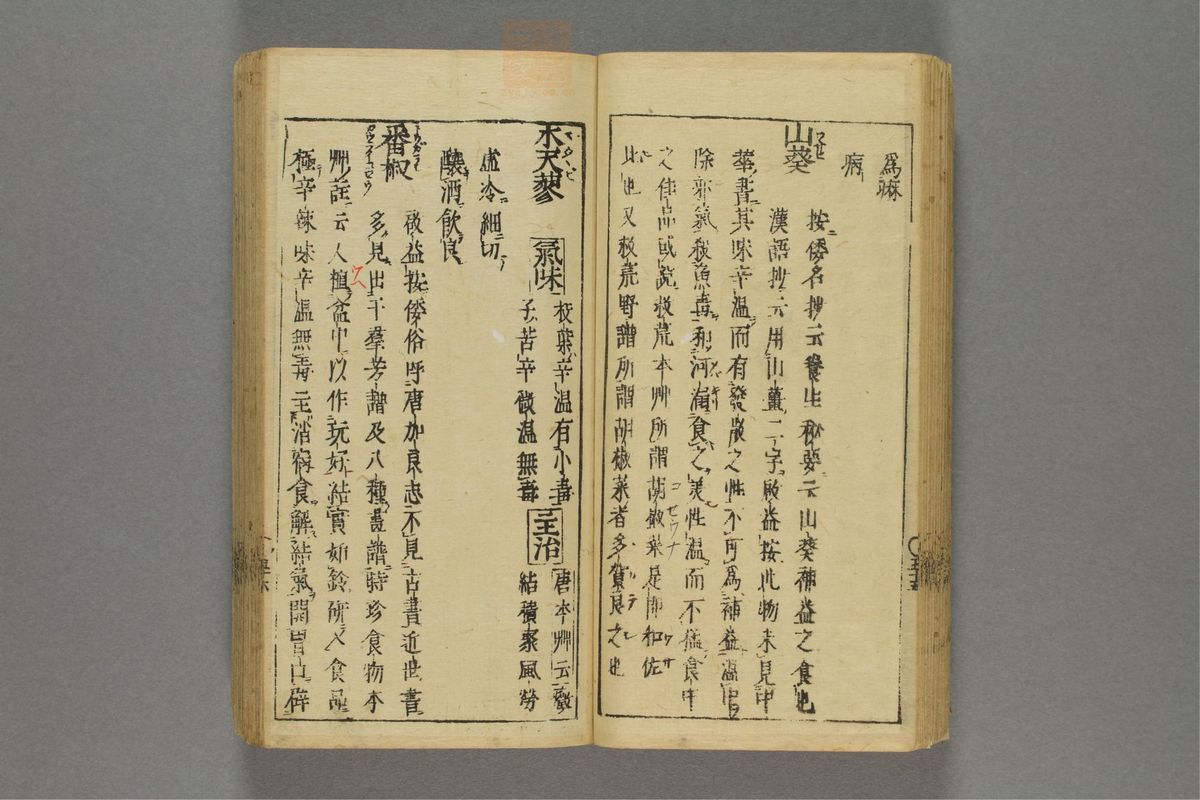 為痳
病
山葵
按倭名抄云養生秘要云山葵補益之食也
漢語抄云用山薑二字啟益按此物未見中
華書其味辛温而有發散之性不可為補益温胃
除邪氣殺魚毒和河海食之美性温而不猛食中
之佳品或說救荒本艸所謂胡椒菜是即和佐
比也又救荒野譜所謂胡椒菜者多賀良之也
木天蓼
氣味
枝葉辛温有小毒
子苦辛微温無毒
主治
唐本艸云癥
結積聚風勞
虛冷細切
釀酒飲良
番椒
啟益按倭俗呼唐加良志不見古書近世書
多見出于羣芳譜及八種畫譜時珍食物本
艸註云人植盆中以作玩好結實如鈴研入食品
極辛辣味辛温無毒主消宿食解結氣開胃口辟